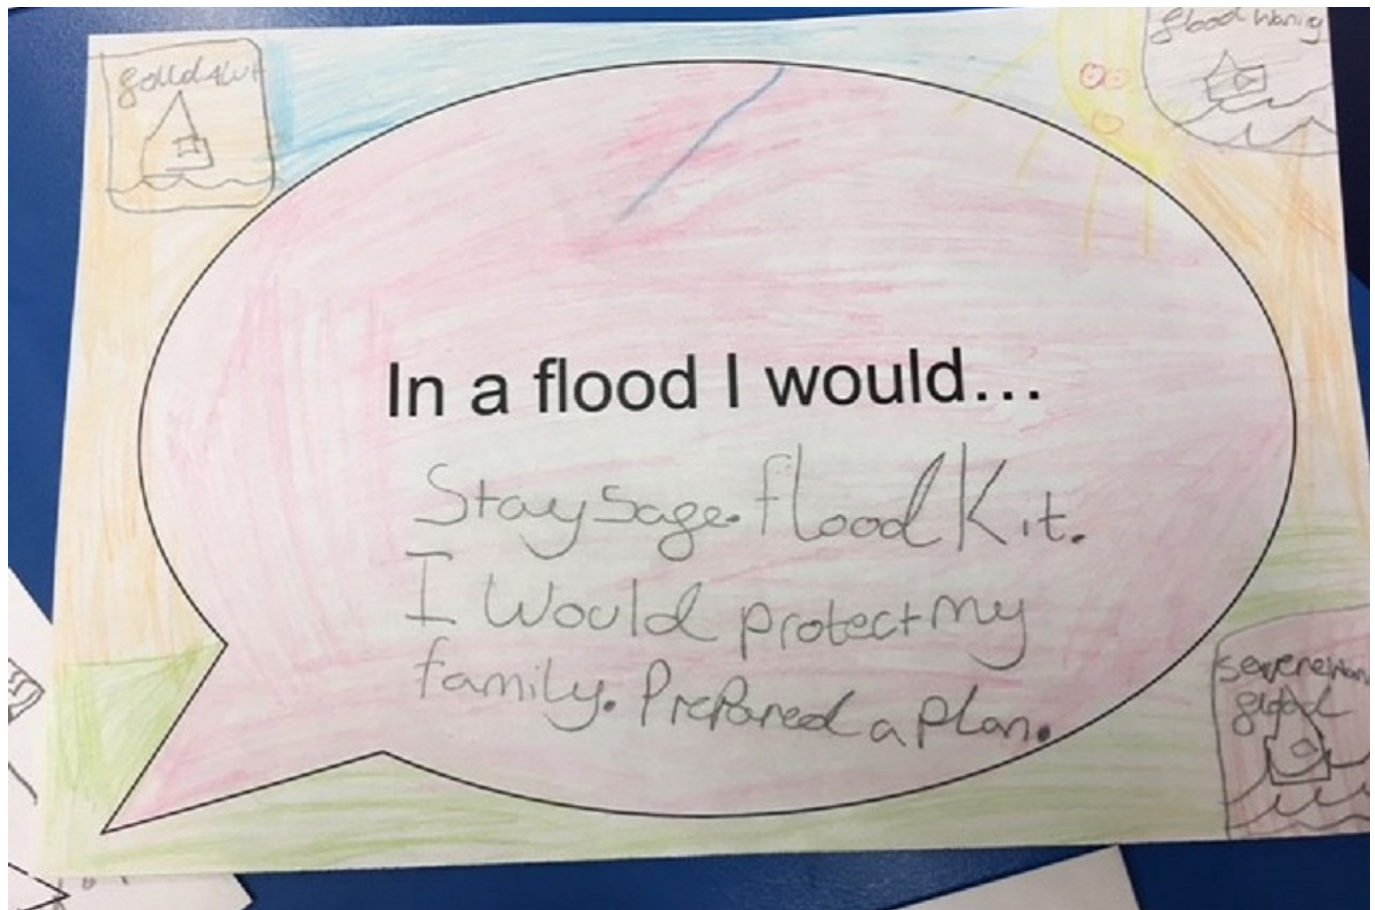 flood Wanig
In a flood I would...
Stay sage. flood Kit.
I Would protect my
family. Prepared a plan.
flood